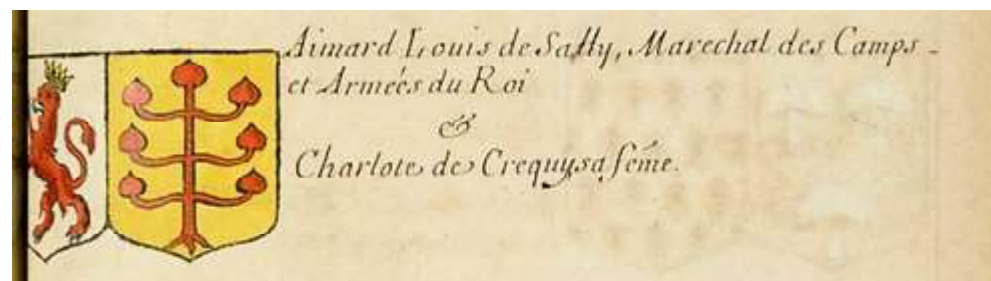 Aimard Louis de Sailly, Marechal des Camps -
et Armeés du Roi
&
Charlote de Crequy sa fem̃e.